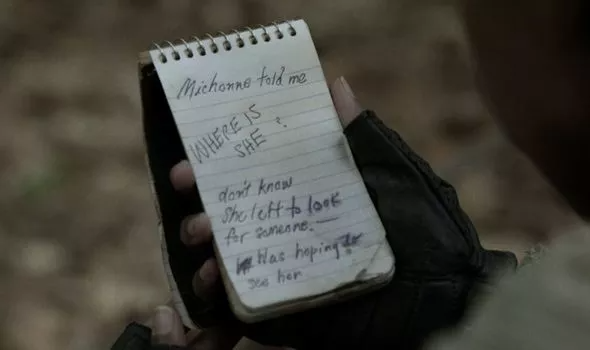 Michonne told me
WHERE IS
SHE ?
don't know
She left to look
for someone.
Was hoping to
see her